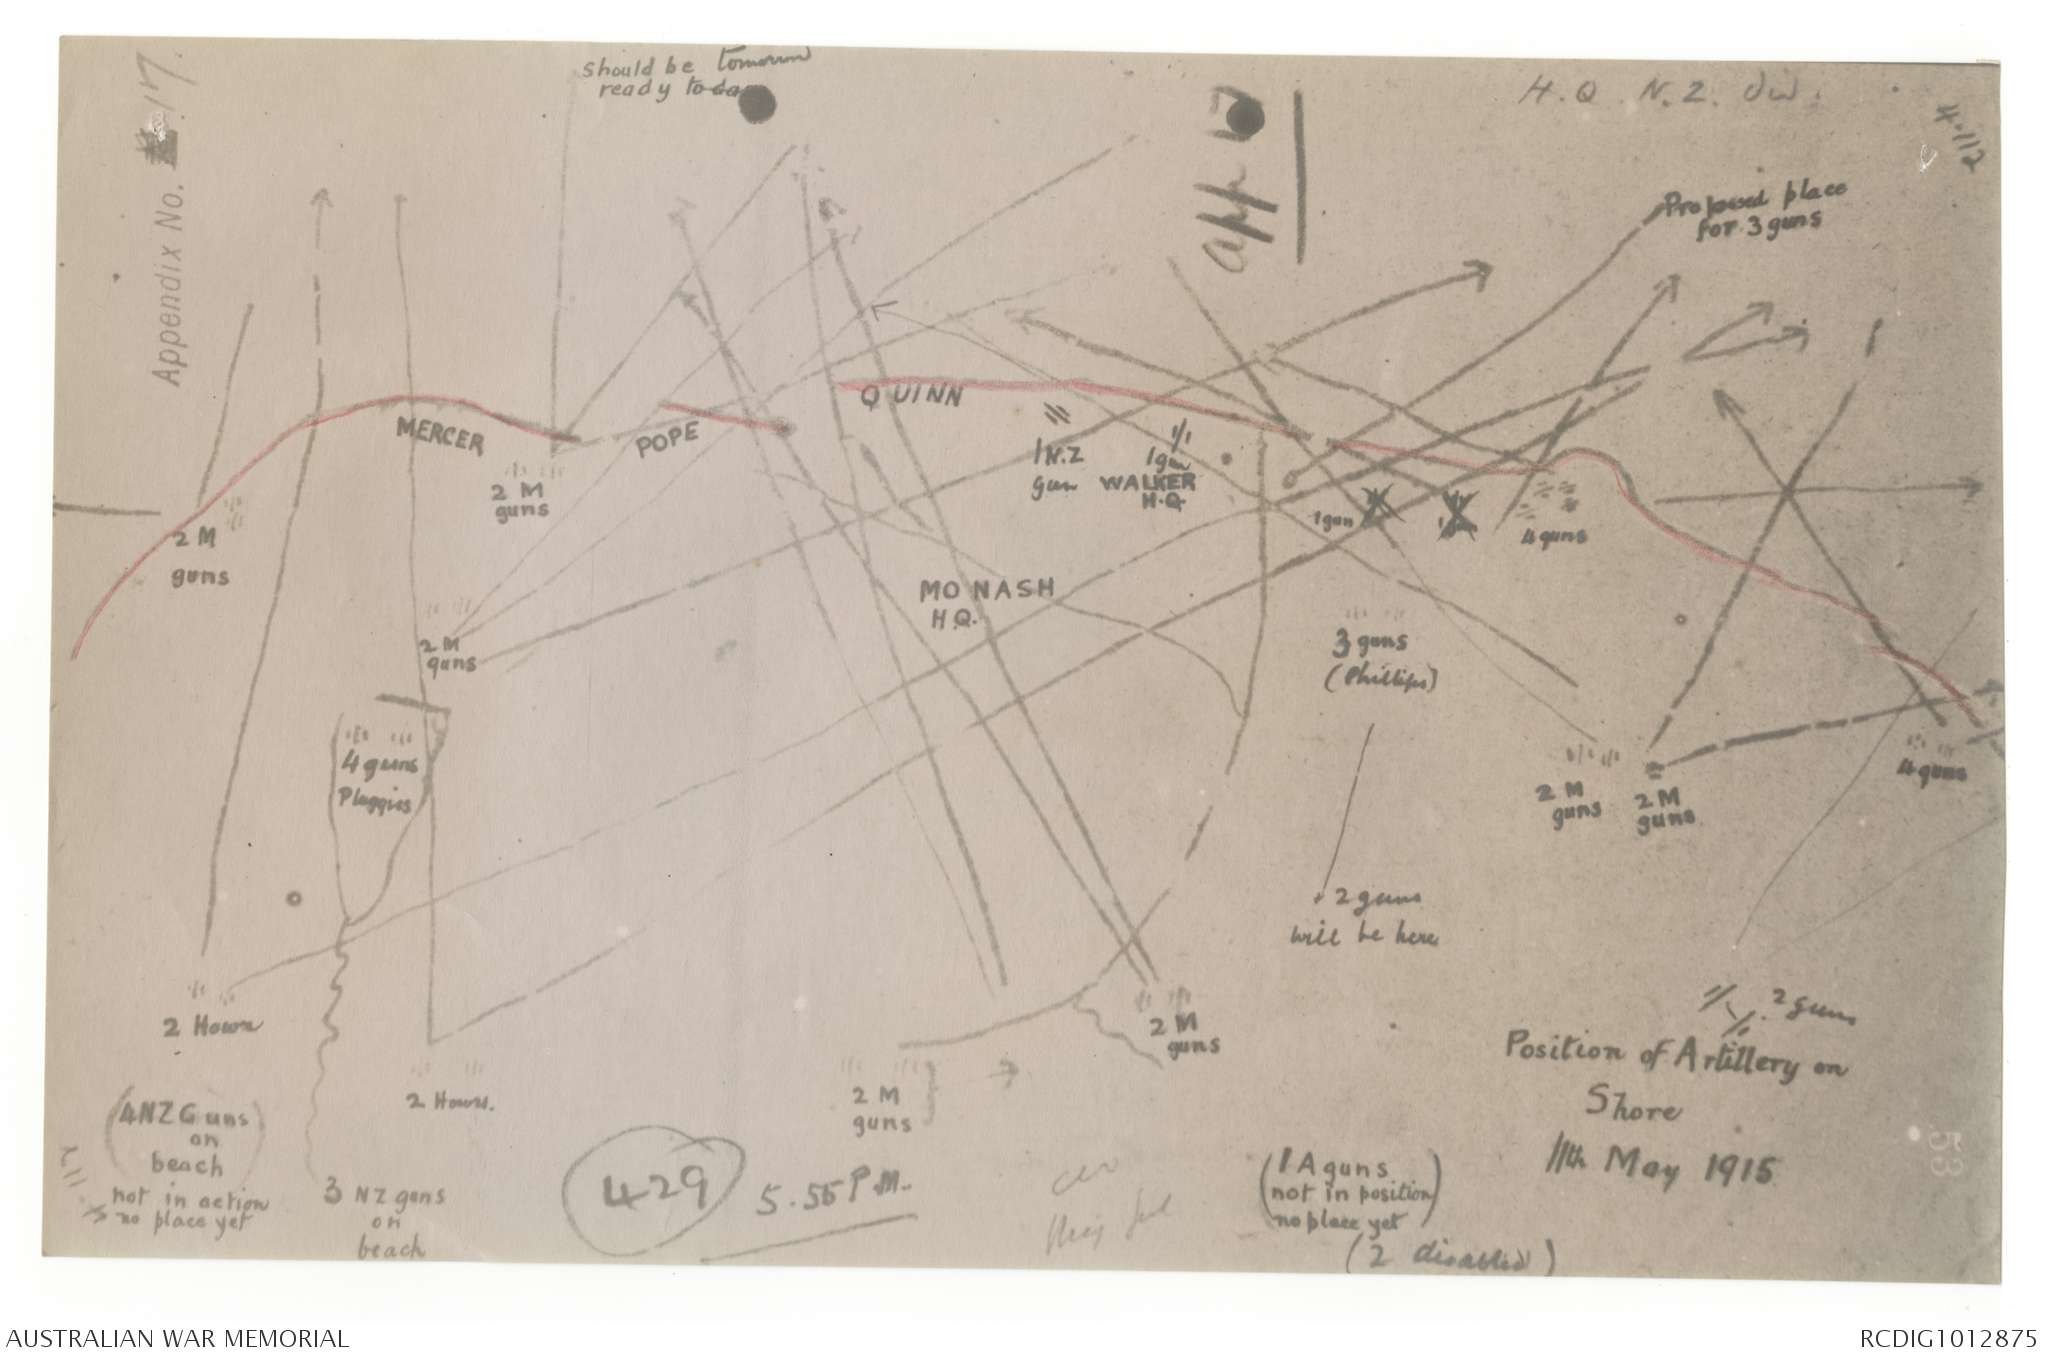 Appendix No. 17.
should be tomorrow
ready to-day
app 17
H.Q. N.Z. Div.
4.112
Proposed place
for 3 guns
MERCER
POPE
QUINN
1 N.Z
gun
1 gun
WALKER
H.Q.
1 gun
4 guns
2 M
guns
2 M
guns
2 M
guns
MONASH
H.Q.
3 guns
(Phillips)
4 guns
Pluggies
2 M
guns
2 M
guns
4 guns
2 guns
will be here
2 Howrs
2 Howrs.
2 M
guns
2 M
guns
2 guns
Position of Artillery on
Shore
11th May 1915
(4 NZ Guns
on
beach)
not in action
no place yet
3 NZ guns
on
beach
429
5.55 P.M.
(1 A guns
not in position
no place yet)
(2 disabled)
53
AUSTRALIAN WAR MEMORIAL
RCDIG1012875